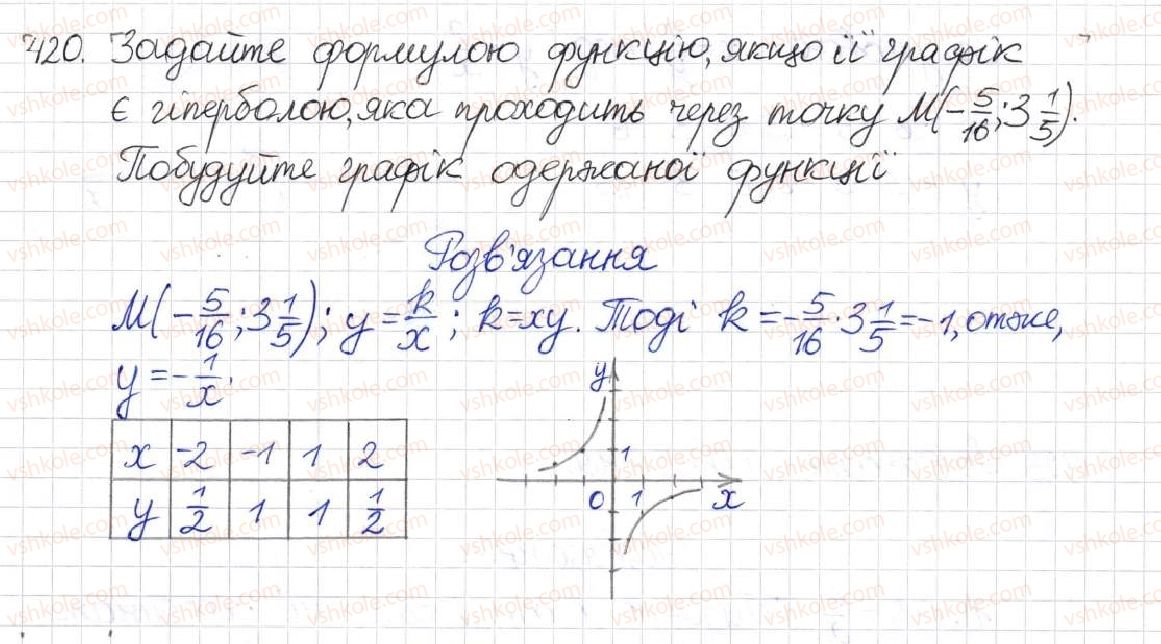 420. Задайте формулою функцію, якщо її графік
є гіперболою, яка проходить через точку M(-5/16; 3 1/5).
Побудуйте графік одержаної функції
Розв'язання
M(-5/16; 3 1/5); y = k/x; k = xy. Тоді k = -5/16 · 3 1/5 = -1, отже,
y = -1/x.
x -2 -1 1 2
y 1/2 1 1 1/2
y
1
0 1 x
vshkole.com